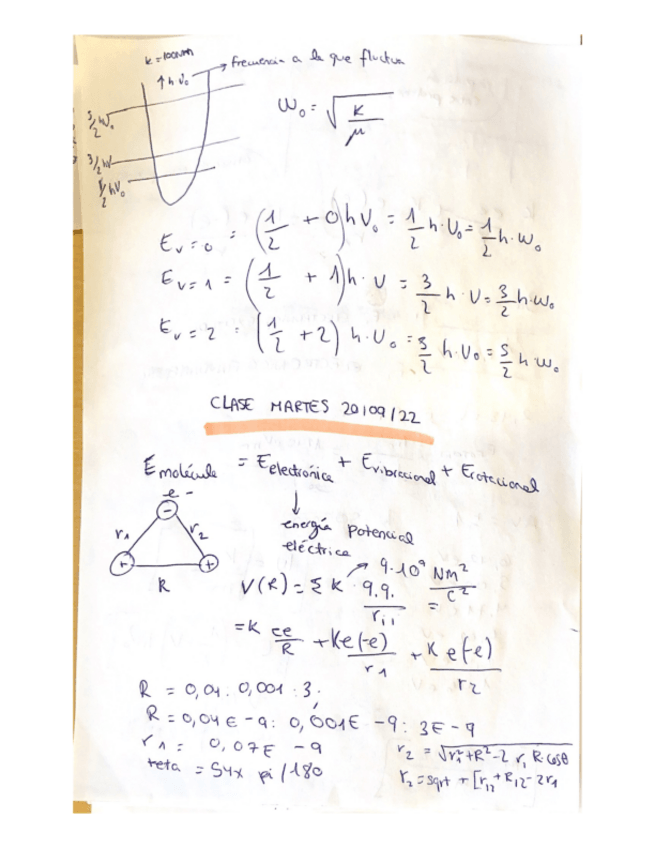 k = 100 N/m
↑ h ν₀ → frecuencia a la que fluctua
5/2 hω₀
3/2 hν
1/2 hν₀
ω₀ = √(K/μ)
E v=0 = (1/2 + 0) h ν₀ = 1/2 h·ν₀ = 1/2 h·ω₀
E v=1 = (1/2 + 1) h·ν = 3/2 h·ν = 3/2 h·ω₀
E v=2 = (1/2 + 2) h·ν₀ = 5/2 h·ν₀ = 5/2 h ω₀
CLASE MARTES 20/09/22
E molécule = E electrónica + E vibracional + E rotacional
e-
r1 r2
R
energía potencial
eléctrica
9·10⁹ Nm²/C²
V(R) = Σ K · q.q./rij =
= K ee/R + Ke(-e)/r1 + K e(-e)/r2
R = 0,04 : 0,001 : 3;
R = 0,04 E -9 : 0,001E -9 : 3E -9
r1 = 0,07E -9
teta = 54x pi/180
r2 = √(r1² + R² - 2 r1 R·cosθ)
r2 = sqrt + [r12 + R12 - 2r1